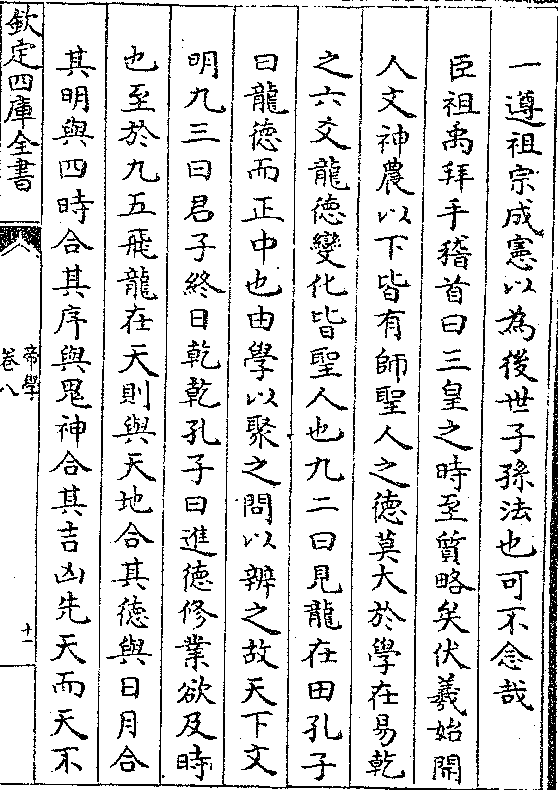 一遵祖宗成憲以為後世子孫法也可不念哉
臣祖禹拜手稽首曰三皇之時至質略矣伏羲始開
人文神農以下皆有師聖人之德莫大於學在易乾
之六爻龍德變化皆聖人也九二曰見龍在田孔子
曰龍德而正中也由學以聚之問以辨之故天下文
明九三曰君子終日乾乾孔子曰進德修業欲及時
也至於九五飛龍在天則與天地合其德與日月合
其明與四時合其序與鬼神合其吉凶先天而天不
欽定四庫全書
帝學
卷八
十一